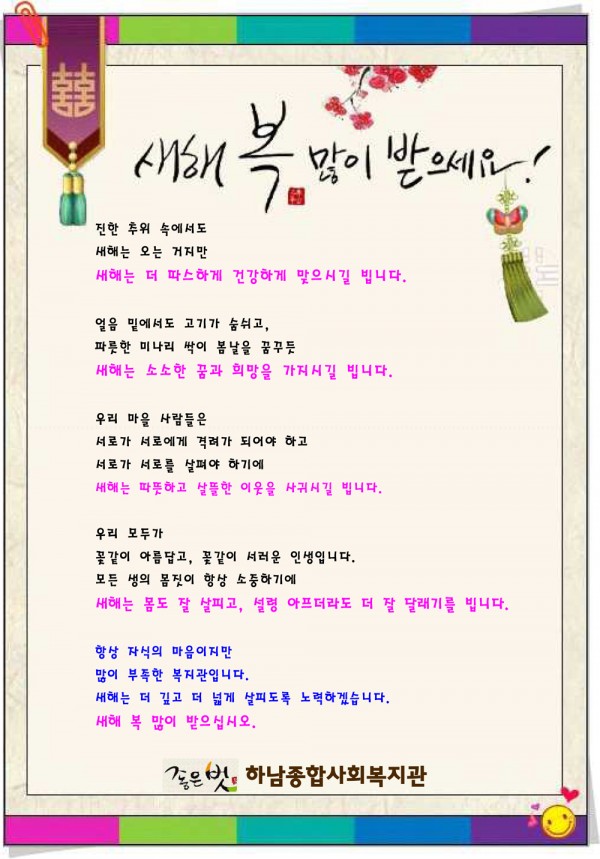 새해 복 많이 받으세요!
진한 추위 속에서도
새해는 오는 거지만
새해는 더 따스하게 건강하게 맞으시길 빕니다.
얼음 밑에서도 고기가 숨쉬고,
파릇한 미나리 싹이 봄날을 꿈꾸듯
새해는 소소한 꿈과 희망을 가지시길 빕니다.
우리 마을 사람들은
서로가 서로에게 격려가 되어야 하고
서로가 서로를 살펴야 하기에
새해는 따뜻하고 살뜰한 이웃을 사귀시길 빕니다.
우리 모두가
꽃같이 아름답고, 꽃같이 서러운 인생입니다.
모든 생의 몸짓이 항상 소중하기에
새해는 몸도 잘 살피고, 설령 아프더라도 더 잘 달래기를 빕니다.
항상 자식의 마음이지만
많이 부족한 복지관입니다.
새해는 더 깊고 더 넓게 살피도록 노력하겠습니다.
새해 복 많이 받으십시오.
좋은벗 하남종합사회복지관